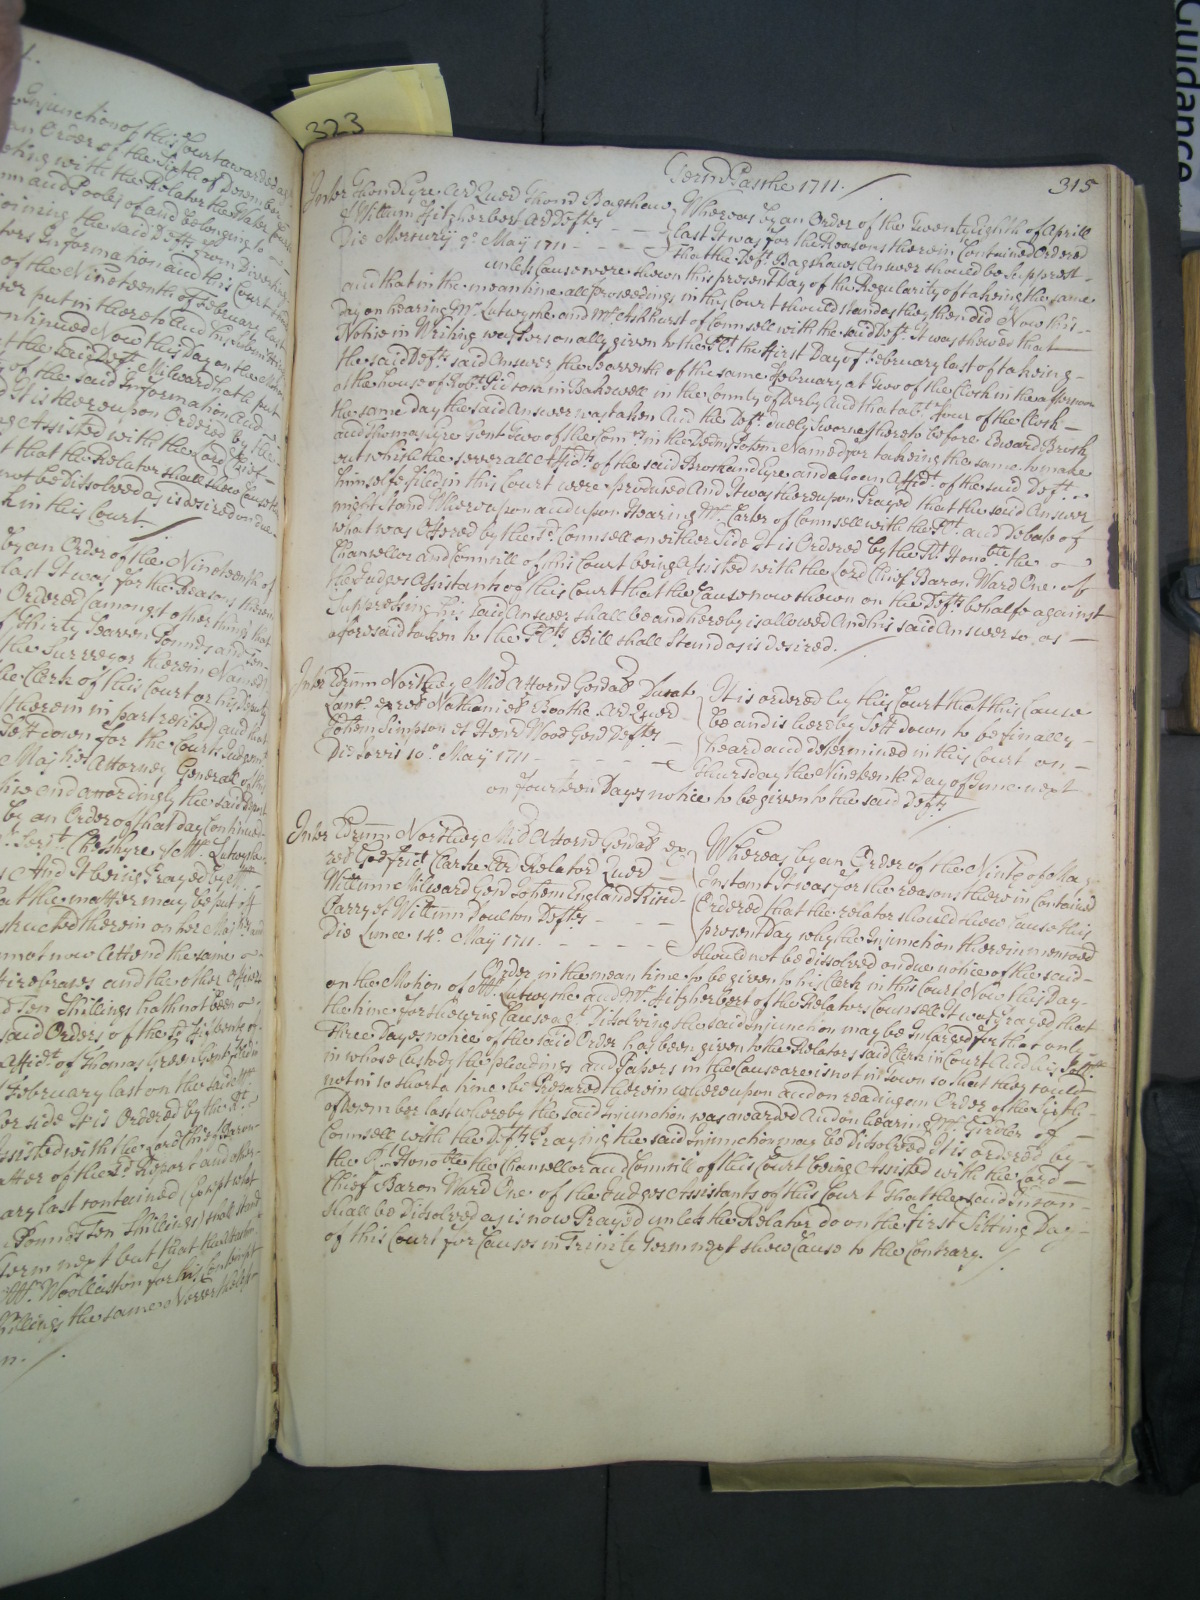 Injunction of this Court awarded
an Order of the Sixth of December
with the Relator the Water
and Pooles of and belonging to
joining the said Defts from Diverting
Information and this Court
of the Nineteenth of February last
put in thereto And
Now this Day on the
the said Deft Milward hath put
of the said Information And
It is thereupon Ordered by the
Assisted with the Lord Chief
that the Relator shall shew Cause
not be Dissolved as is desired on due
in this Court.
by an Order of the Nineteenth of
last It was for the Reasons therein
Ordered (amongst other things) that
Thirty Seaven Pounds and Ten
the Surveyor therein Named
the Clerk of this Court or his Deputy
therein in part recited) and that
Sett down for the Courts Judgmt
Majties Attorney Generall of this
and accordingly the said Report
by an Order of that day Continued
Serjt Cheshyre & Mr Lutwyche
And It being Prayed by
the matter may be put off
structed therein on her Majties
not now Attend the same
and the other Officers
Ten Shillings hath not been
said Orders of the sd
Affidt of Thomas Green Gent
February last on the said
side It is Ordered by the Rt
Assisted with the Lord Chief Baron
matter of the sd Report and other
last contained (Except what
Pounds Ten Shillings) shall stand
Term next but that the
Mr Woollaston for his Contempt
the same
323
Termo Paschæ 1711.
315
Inter Thom Eyre Ar Quer Thom Bagshaw
& Willum Fitzherbert Ar Deftes
Die Mercurij 9o May 1711
Whereas by an Order of the Twenty Eighth of Aprill
last It was for the Reasons therein Contained Ordered
that the Deft Bagshaws Answer should be Supprest
unless Cause were shewn this present Day of the Regularity of takeing the same
and that in the meantime all proceedings in this Court should stand as they then did Now this
day on hearing Mr Lutwyche and Mr Ashhurst of Councell with the said Deft It was shewed that
Notice in Writing was Personally given to the Plt the first Day of February last of takeing
the said Defts said Answer the Seaventh of the same February at Two of the Clock in the afternoon
at the house of Robt in Bakewell in the County of Derby And that abt four of the Clock
the same day the said Answer was taken And the Deft duely Sworne thereto before Edward Brush
and Thomas Eyre Gent Two of the Comrs in the Dedimus Potem Named for takeing the same to make
out which the severall Affidts of the said Brush and Eyre and also an Affidt of the said Deft
himselfe filed in this Court were produced And It was thereupon Prayed that the said Answer
might stand Whereupon and upon Hearing Mr Carter of Councell with the Plt and Debate of
what was Offered by the sd Councell on either Side It is Ordered by the Rt Honoble the
Chancellor and Councill of this Court being Assisted with the Lord Chief Baron Ward One of
the Judges Assistants of this Court that the Cause now shewn on the Defts behalfe against
Suppressing his said Answer shall be and hereby is allowed And his said Answer so as
aforesaid taken to the Plts Bill shall Stand as is desired.
Inter Edrum Northey Mil Attorn Genal Ducat
Lanc ex rel Nathanielis Boothe Ar Quer
Johem Simpson et Henr Wood Gen Deftes
Die Jovis 10o May 1711
It is ordered by this Court that this Cause
be and is hereby Sett down to be finally
heard and determined in this Court on
Thursday the Nineteenth Day of June next
on fourteen Days notice to be given to the said Defts
Inter Edrum Northey Mil Attorn Genal ex
rel Godfrid Clarke Ar Relator Quer
Willum Milward Gen Johem England Ricd
Barry et Willum Poulton Deftes
Die Lunæ 14o May 1711.
Whereas by an Order of the Ninth of May
Instant It was for the reasons therein Contained
Ordered that the relator should shew Cause this
present Day why the Injunction therein menconed
should not be dissolved on due notice of the said
Order in the mean time to be given to his Clerk in this Court Now this Day
on the Motion of Mr Lutwyche and Mr Fitzherbert of the Relators Councell It was prayed that
the time for shewing Cause agt Disolving the said Injunction may be Inlarged for that only
Three Dayes notice of the said Order has been given to the Relators said Clerk in Court And his
in whose custody the pleadings and Papers in the Cause are is not in Town so that they could
not in so short a time be Prepared therein whereupon and on reading an Order of the Sixth
of December last whereby the said Injunction was awarded And on hearing Mr Girdler of
Councell with the Defts Praying the said Injunction may be Dissolved It is ordered by
the Rt Honoble the Chancellor and Councill of this Court being Assisted with the Lord
Chief Baron Ward One of the Judges Assistants of this Court That the said Injuncon
shall be Disolved as is now Prayed unless the Relator do on the first Sitting Day
of this Court for Causes in Trinity Term next shew Cause to the Contrary.
Guidance